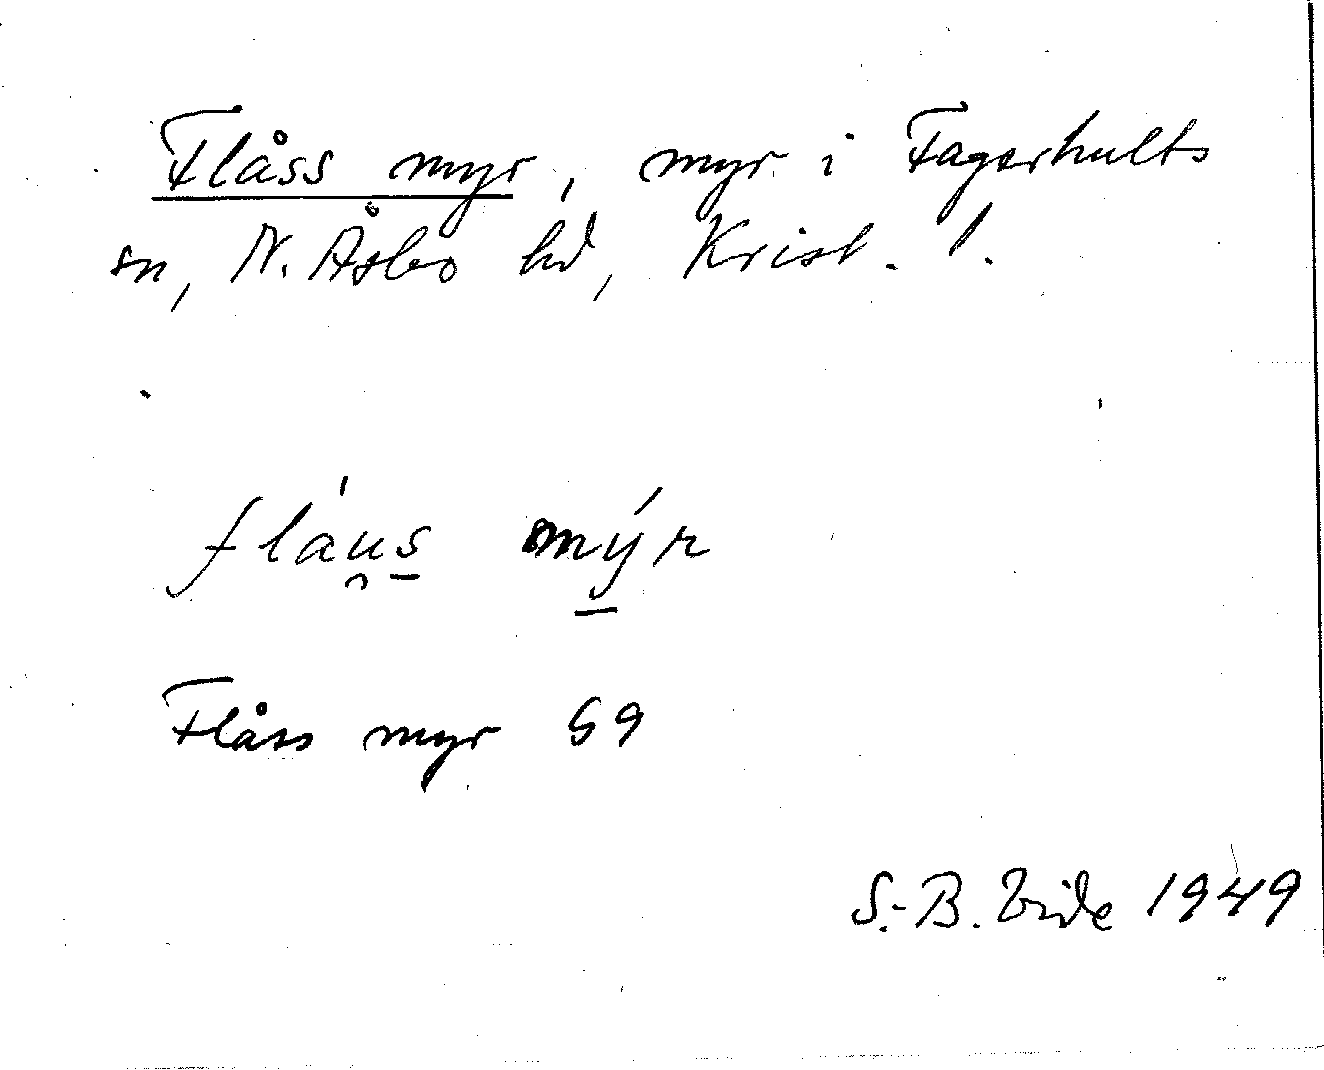 Flåss myr, myr i Fagerhults
sn, N. Åsbo hd, Krist. l.
fláu̯s mýr
Flåss myr 59
S.-B. Vide 1949